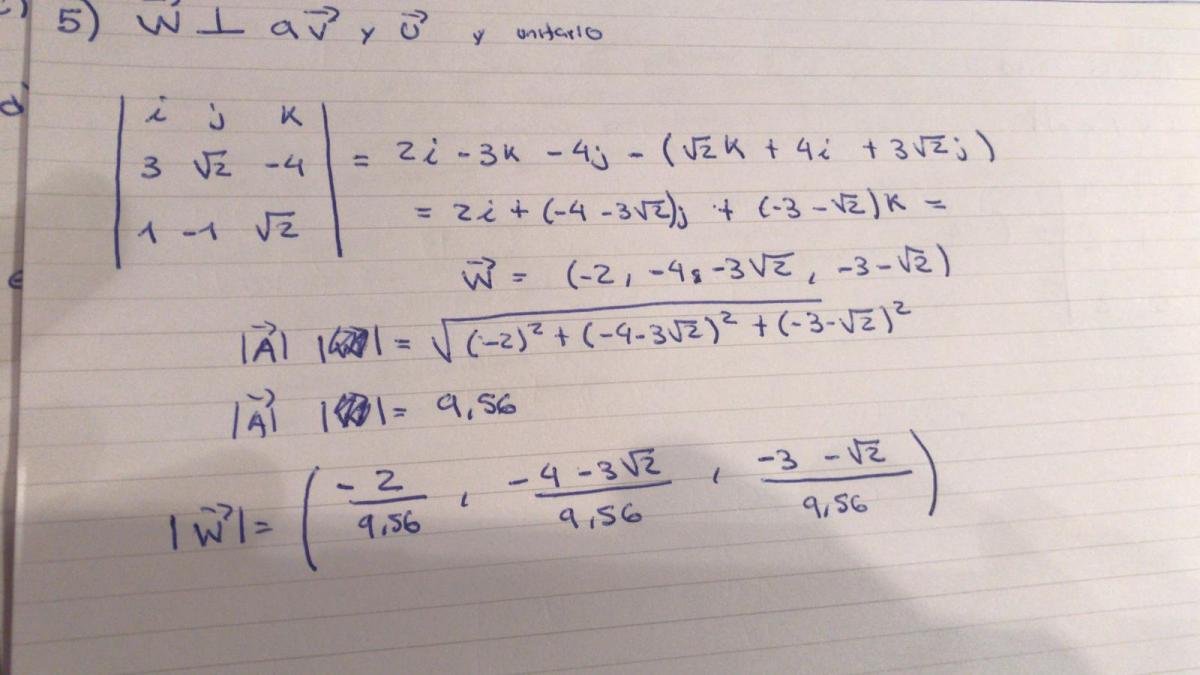 5) W⃗ ⊥ a v⃗ y u⃗ y unitario
| i j k |
| 3 √2 -4 | = 2i - 3k - 4j - (√2k + 4i + 3√2j)
| 1 -1 √2 | = 2i + (-4 - 3√2)j + (-3 - √2)k =
W⃗ = (-2, -4, -3√2, -3-√2)
|A⃗| = √(-2)² + (-4-3√2)² + (-3-√2)²
|A⃗| = 9,56
|W⃗| = (-2/9,56, -4-3√2/9,56, -3-√2/9,56)